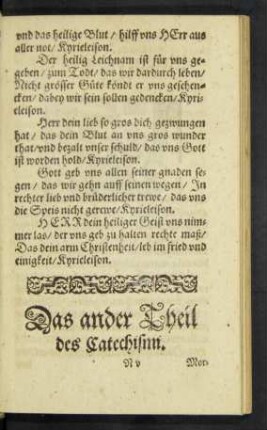 vnd das heilige Blut / hilff vns HErr aus
aller not / Kyrieleison.
Der heilig Leichnam ist für vns ge-
geben / zum Todt / das wir dardurch leben /
Nicht grösser Güte kondt er vns geschen-
cken / dabey wir sein sollen gedencken / Kyri-
eleison.
Herr dein lieb so gros dich gezwungen
hat / das dein Blut an vns gros wunder
that / vnd bezalt vnser schuld / das vns Gott
ist worden hold / Kyrieleison.
Gott geb vns allen seiner gnaden se-
gen / das wir gehn auff seinen wegen / In
rechter lieb vnd brüderlicher trewe / das vns
die Speis nicht gerewe / Kyrieleison.
HERR dein heiliger Geist vns nim-
mer las / der vns geb zu halten rechte maß /
Das dein arm Christenheit / leb im fried vnd
einigkeit / Kyrieleison.
Das ander Theil
des Catechismi.
N v Mor-